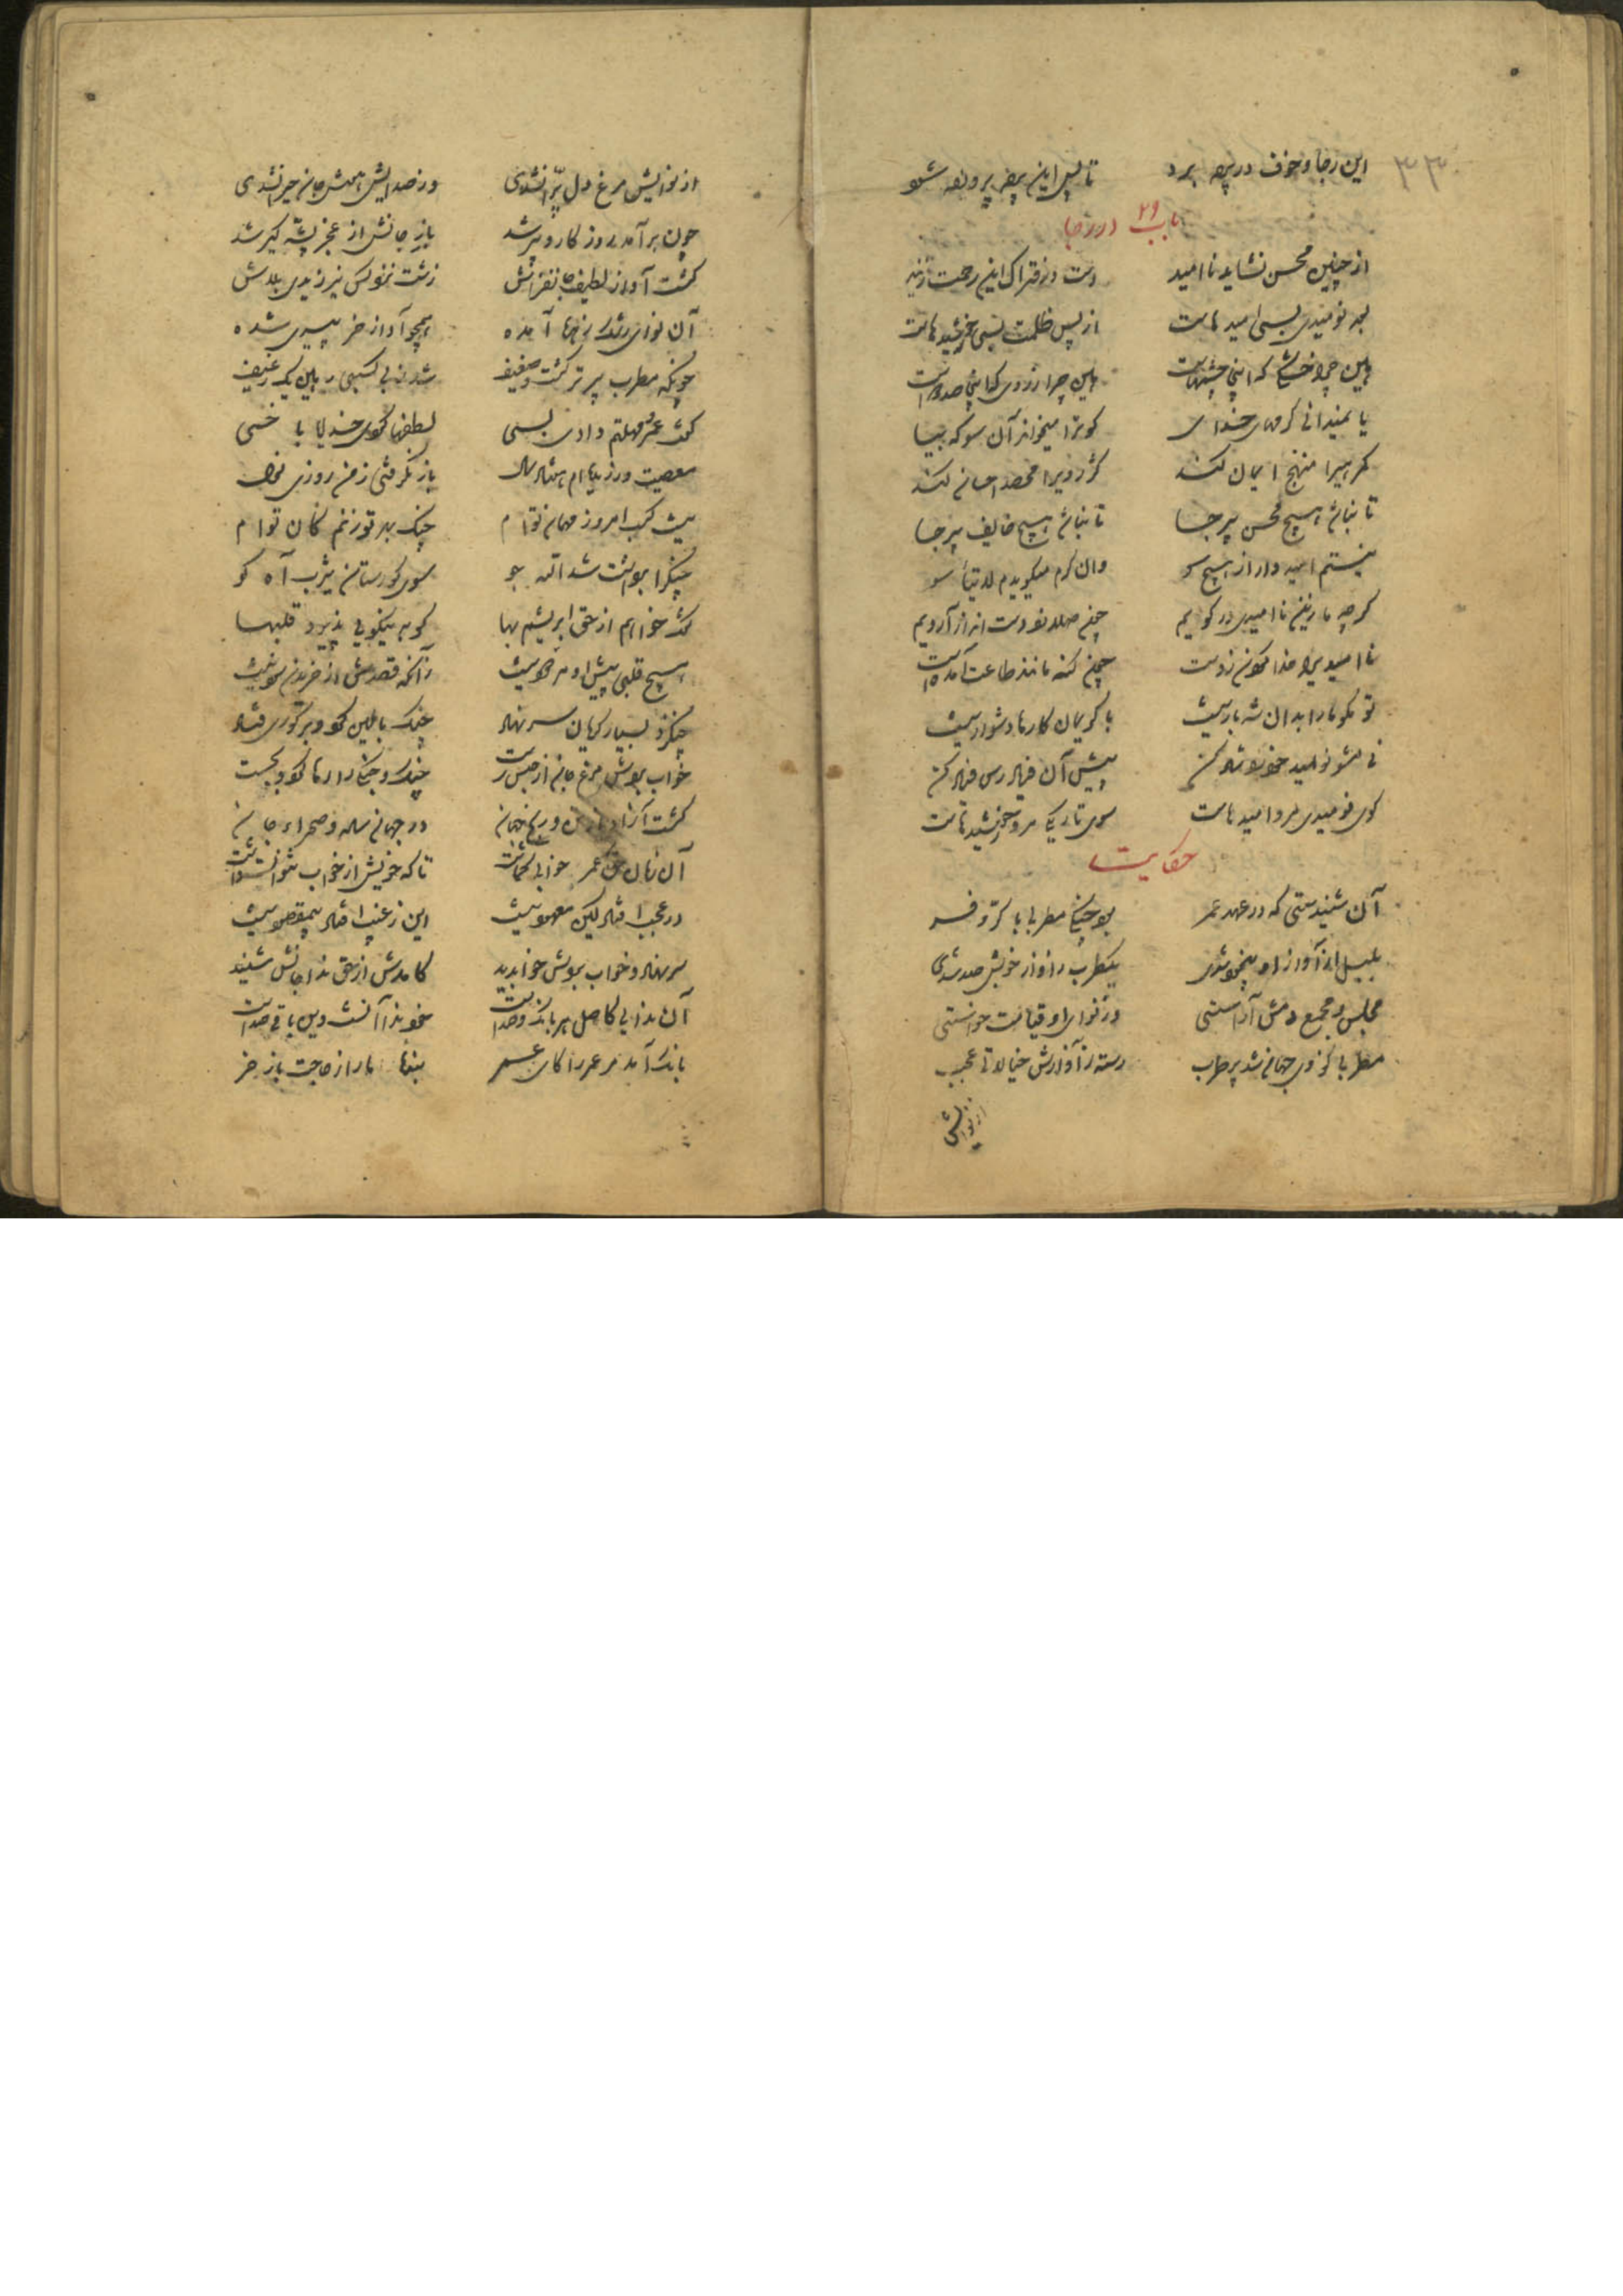 ۳۳
این رجا و خوف در پرده برد تا پس این پرده پرورده شود
باب ۲۹ در رجا
از چنین محسن نشاید ناامید دست در فتراک این رحمت زنید
بعد نومیدی بسی امیدهاست از پس ظلمت بسی خورشیدهاست
هین چرا خشکی که اینجا چشمهاست هین چرا زردی که اینجا صد دواست
یا نمیدانی کرمهای خدای کو ترا میخواند آن سو که بیا
کمرهیرا منهج ایمان کند کژرویرا محصد احسان کند
تا نباشد هیچ محسن بیرجا تا نباشد هیچ خایف بیرجا
نیستم امیدوار از هیچ سو وان کرم میگویدم لا تیأسوا
کرچه ما زین ناامیدی در کویم چون صلا زد دست اندازان رویم
ناامیدیرا خدا کردن زدست چون کنه مانند طاعت آمدست
تو مکو ما را بدان شه بار نیست با کریمان کارها دشوار نیست
نی مشو نومید خود را شاد کن پیش آن فریادرس فریاد کن
کوی نومیدی مرو امیدهاست سوی تاریکی مرو خورشیدهاست
حکایت
آن شنیدستی که در عهد عمر بود چنکی مطربی با کر و فر
بلبل از آواز او بیخود شدی یکطرب ز آواز خوبش صد شدی
مجلس و مجمع دمش آراستی وز نوای او قیامت خواستی
مطربی کز وی جهان شد پر طرب رسته ز آوازش خیالاتی عجب
از نوایش
از نوایش مرغ دل پران شدی وز صدایش هوش جان حیران شدی
چون برآمد روزکار و پیر شد باز جانش از عجز پشه کیر شد
کشت آواز لطیف جانفزاش زشت نزد کس نیرزیدی بلاش
آن نوای رشک زهره آمده همچو آواز خر پیری شده
چونکه مطرب پیرتر کشت و ضعیف شد ز بی کسبی رهین یک رغیف
گفت عمر و مهلتم دادی بسی لطفها کردی خدایا با خسی
معصیت ورزیدهام هفتاد سال باز نکرفتی ز من روزی نوال
نیست کسب امروز مهمان توام چنک بهر تو زنم کان توام
چنکرا برداشت شد الله جو سوی کورستان یثرب آه کو
گفت خواهم از حق ابریشم بها کو به نیکویی پذیرد قلبها
هیچ قلبی پیش او مردود نیست زانکه قصدش از خریدن سود نیست
چنک زد بسیار کریان سر نهاد چنک بالین کرد و بر کوری فتاد
خواب بردش مرغ جان از حبس رست چنک و چنکی را رها کرد و بجست
کشت آزاد از تن و رنج جهان در جهان ساده و صحراء جان
آن زمان حق بر عمر خوابی کماشت تا که خویش از خواب نتوانست داشت
در عجب افتاد کین معهود نیست این ز غیب افتاد بیمقصود نیست
سر نهاد و خواب بردش خواب دید کامدش از حق ندا جانش شنید
آن ندایی کاصل هر بانک و صداست خود ندا آنست وین باقی صداست
بانک آمد مر عمر را کای عمر بنده ما را ز حاجت باز خر